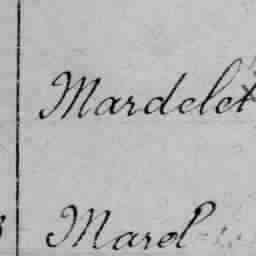 Mardelet
Marol